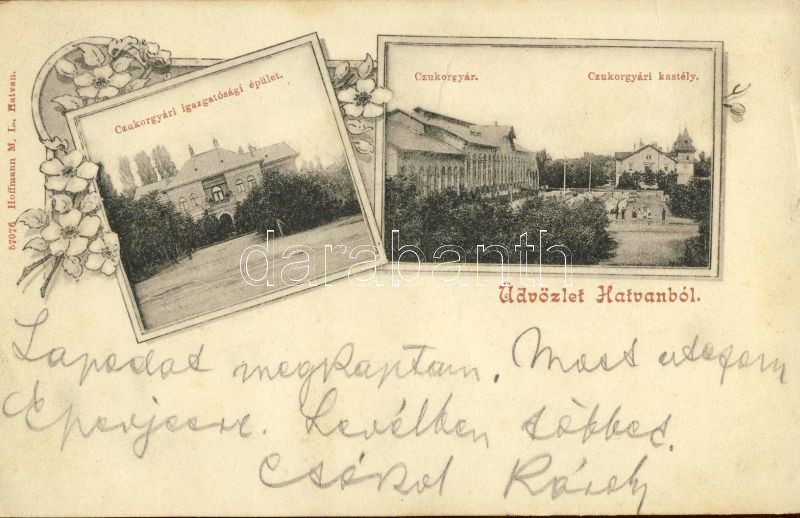 57076 Hoffmann M. L., Hatvan.
Czukorgyári igazgatósági épület.
Czukorgyár. Czukorgyári kastély.
darabanth
Üdvözlet Hatvanból.
Lapodat megkaptam. Most utazom
Eperjesre. Levélben többet.
Csókol Károly